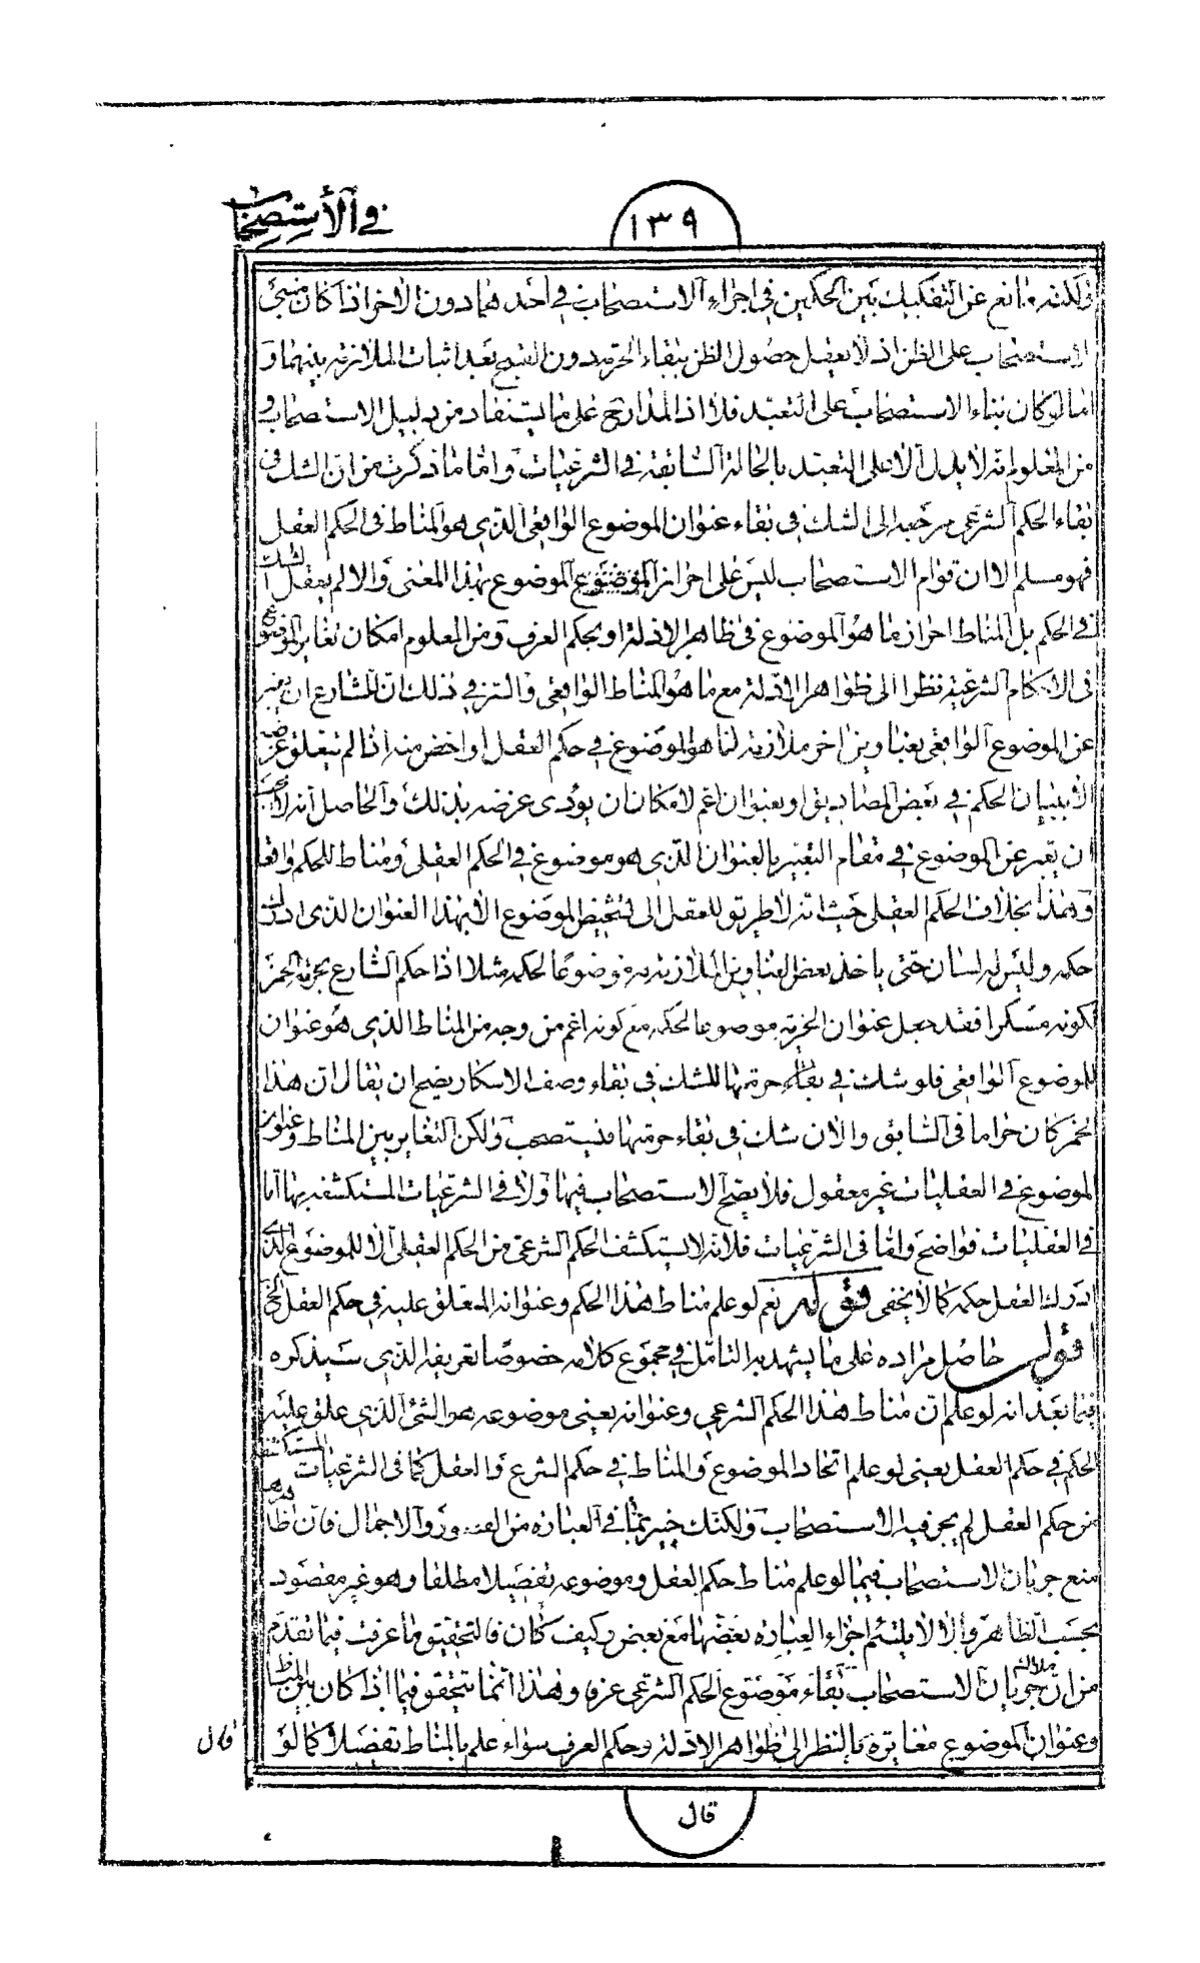 في الأستصحاب
١٣٩
ولكنه مانع عن التفكيك بين الحكمين في اجراء الاستصحاب في احدهما دون الاخر اذا كان مبنى
الاستصحاب على الظن اذ لا يعقل حصول الظن ببقاء الحرمة دون القبح بعد اثبات الملازمة بينهما و
اما لو كان بناء الاستصحاب على التعبد فلا اذ المدار ح على ما يستفاد من دليل الاستصحاب و
من المعلوم انه لا يدل الا على التعبد بالحالة السابقة في الشرعيات واما ما ذكرت من ان الشك في
بقاء الحكم الشرعي مرجعه الى الشك في بقاء عنوان الموضوع الواقعي الذي هو المناط في الحكم العقل
فهو مسلم الا ان قوام الاستصحاب ليس على احراز الموضوع الموضوع بهذا المعنى والا لم يعقل الشك
في الحكم بل المناط احراز ما هو الموضوع في ظاهر الادلة او بحكم العرف ومن المعلوم امكان تغاير الموضوع
في الاحكام الشرعية نظرا الى ظواهر الادلة مع ما هو المناط الواقعي والسر في ذلك ان للشارع ان يعبر
عن الموضوع الواقعي بعناوين اخر ملازمة لما هو الموضوع في حكم العقل او اخص منه اذا لم يتعلق غرضه
الا ببيان الحكم في بعض المصاديق او بعنوان اعم لامكان ان يؤدى غرضه بذلك والحاصل انه لا يجب
ان يعبر عن الموضوع في مقام التعبير بالعنوان الذي هو موضوع في الحكم العقلي ومناط للحكم واقعا
وهذا بخلاف الحكم العقلي حيث انه لا طريق للعقل الى تشخيص الموضوع الا بهذا العنوان الذي ادرك
حكمه وليس له لسان حتى ياخذ بعض العناوين الملازمة له موضوعا لحكمه مثلا اذا حكم الشارع بحرمة الخمر
لكونه مسكرا فقد جعل عنوان الخمرية موضوعا لحكمه مع كونه اعم من وجه من المناط الذي هو عنوان
للموضوع الواقعي فلو شك في بقاء حرمتها للشك في بقاء وصف الاسكار يصح ان يقال ان هذا
الخمر كان حراما في السابق والان شك في بقاء حرمتها فيستصحب ولكن التغاير بين المناط وعنوان
الموضوع في العقليات غير معقول فلا يصح الاستصحاب فيها ولا في الشرعيات المستكشفة بها اما
في العقليات فواضح واما في الشرعيات فلانه لا يستكشف الحكم الشرعي من الحكم العقلي الا للموضوع الذي
ادرك العقل حكمه كما لا يخفى قوله نعم لو علم مناط هذا الحكم وعنوانه المعلق عليه في حكم العقل الخ
اقول حاصل مراده على ما يشهد به التامل في مجموع كلامه خصوصا تعريفه الذي سيذكره
فيما بعد انه لو علم ان مناط هذا الحكم الشرعي وعنوانه يعني موضوعه هو الشئ الذي علق عليه
الحكم في حكم العقل يعني لو علم اتحاد الموضوع والمناط في حكم الشرع والعقل كما في الشرعيات المستكشفة
من حكم العقل لم يجر فيه الاستصحاب ولكنك خبير بما في العبارة من القصور والاجمال فان ظاهرها
منع جريان الاستصحاب فيما لو علم مناط حكم العقل وموضوعه تفصيلا مطلقا وهو غير مقصود
بحسب الظاهر والا لا يلتئم اجزاء العبارة بعضها مع بعض وكيف كان فالتحقيق ما عرفت فيما تقدم
من ان ملاك جريان الاستصحاب بقاء موضوع الحكم الشرعي عرفا وهذا انما يتحقق فيما اذا كان بين المناط
وعنوان الموضوع مغايرة بالنظر الى ظواهر الادلة وحكم العرف سواء علم بالمناط تفصيلا كما لو
قال
قال